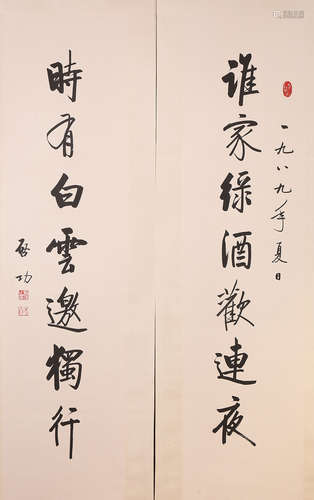 一九八九年夏日
谁家綠酒歡連夜
時有白雲邀獨行
啓功